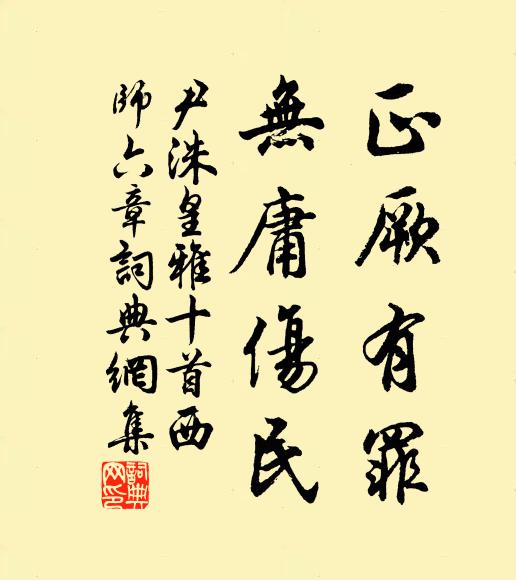 正厥有罪
無庸傷民
尹洙皇雅十首西
師六章詞典網集
詞典網印